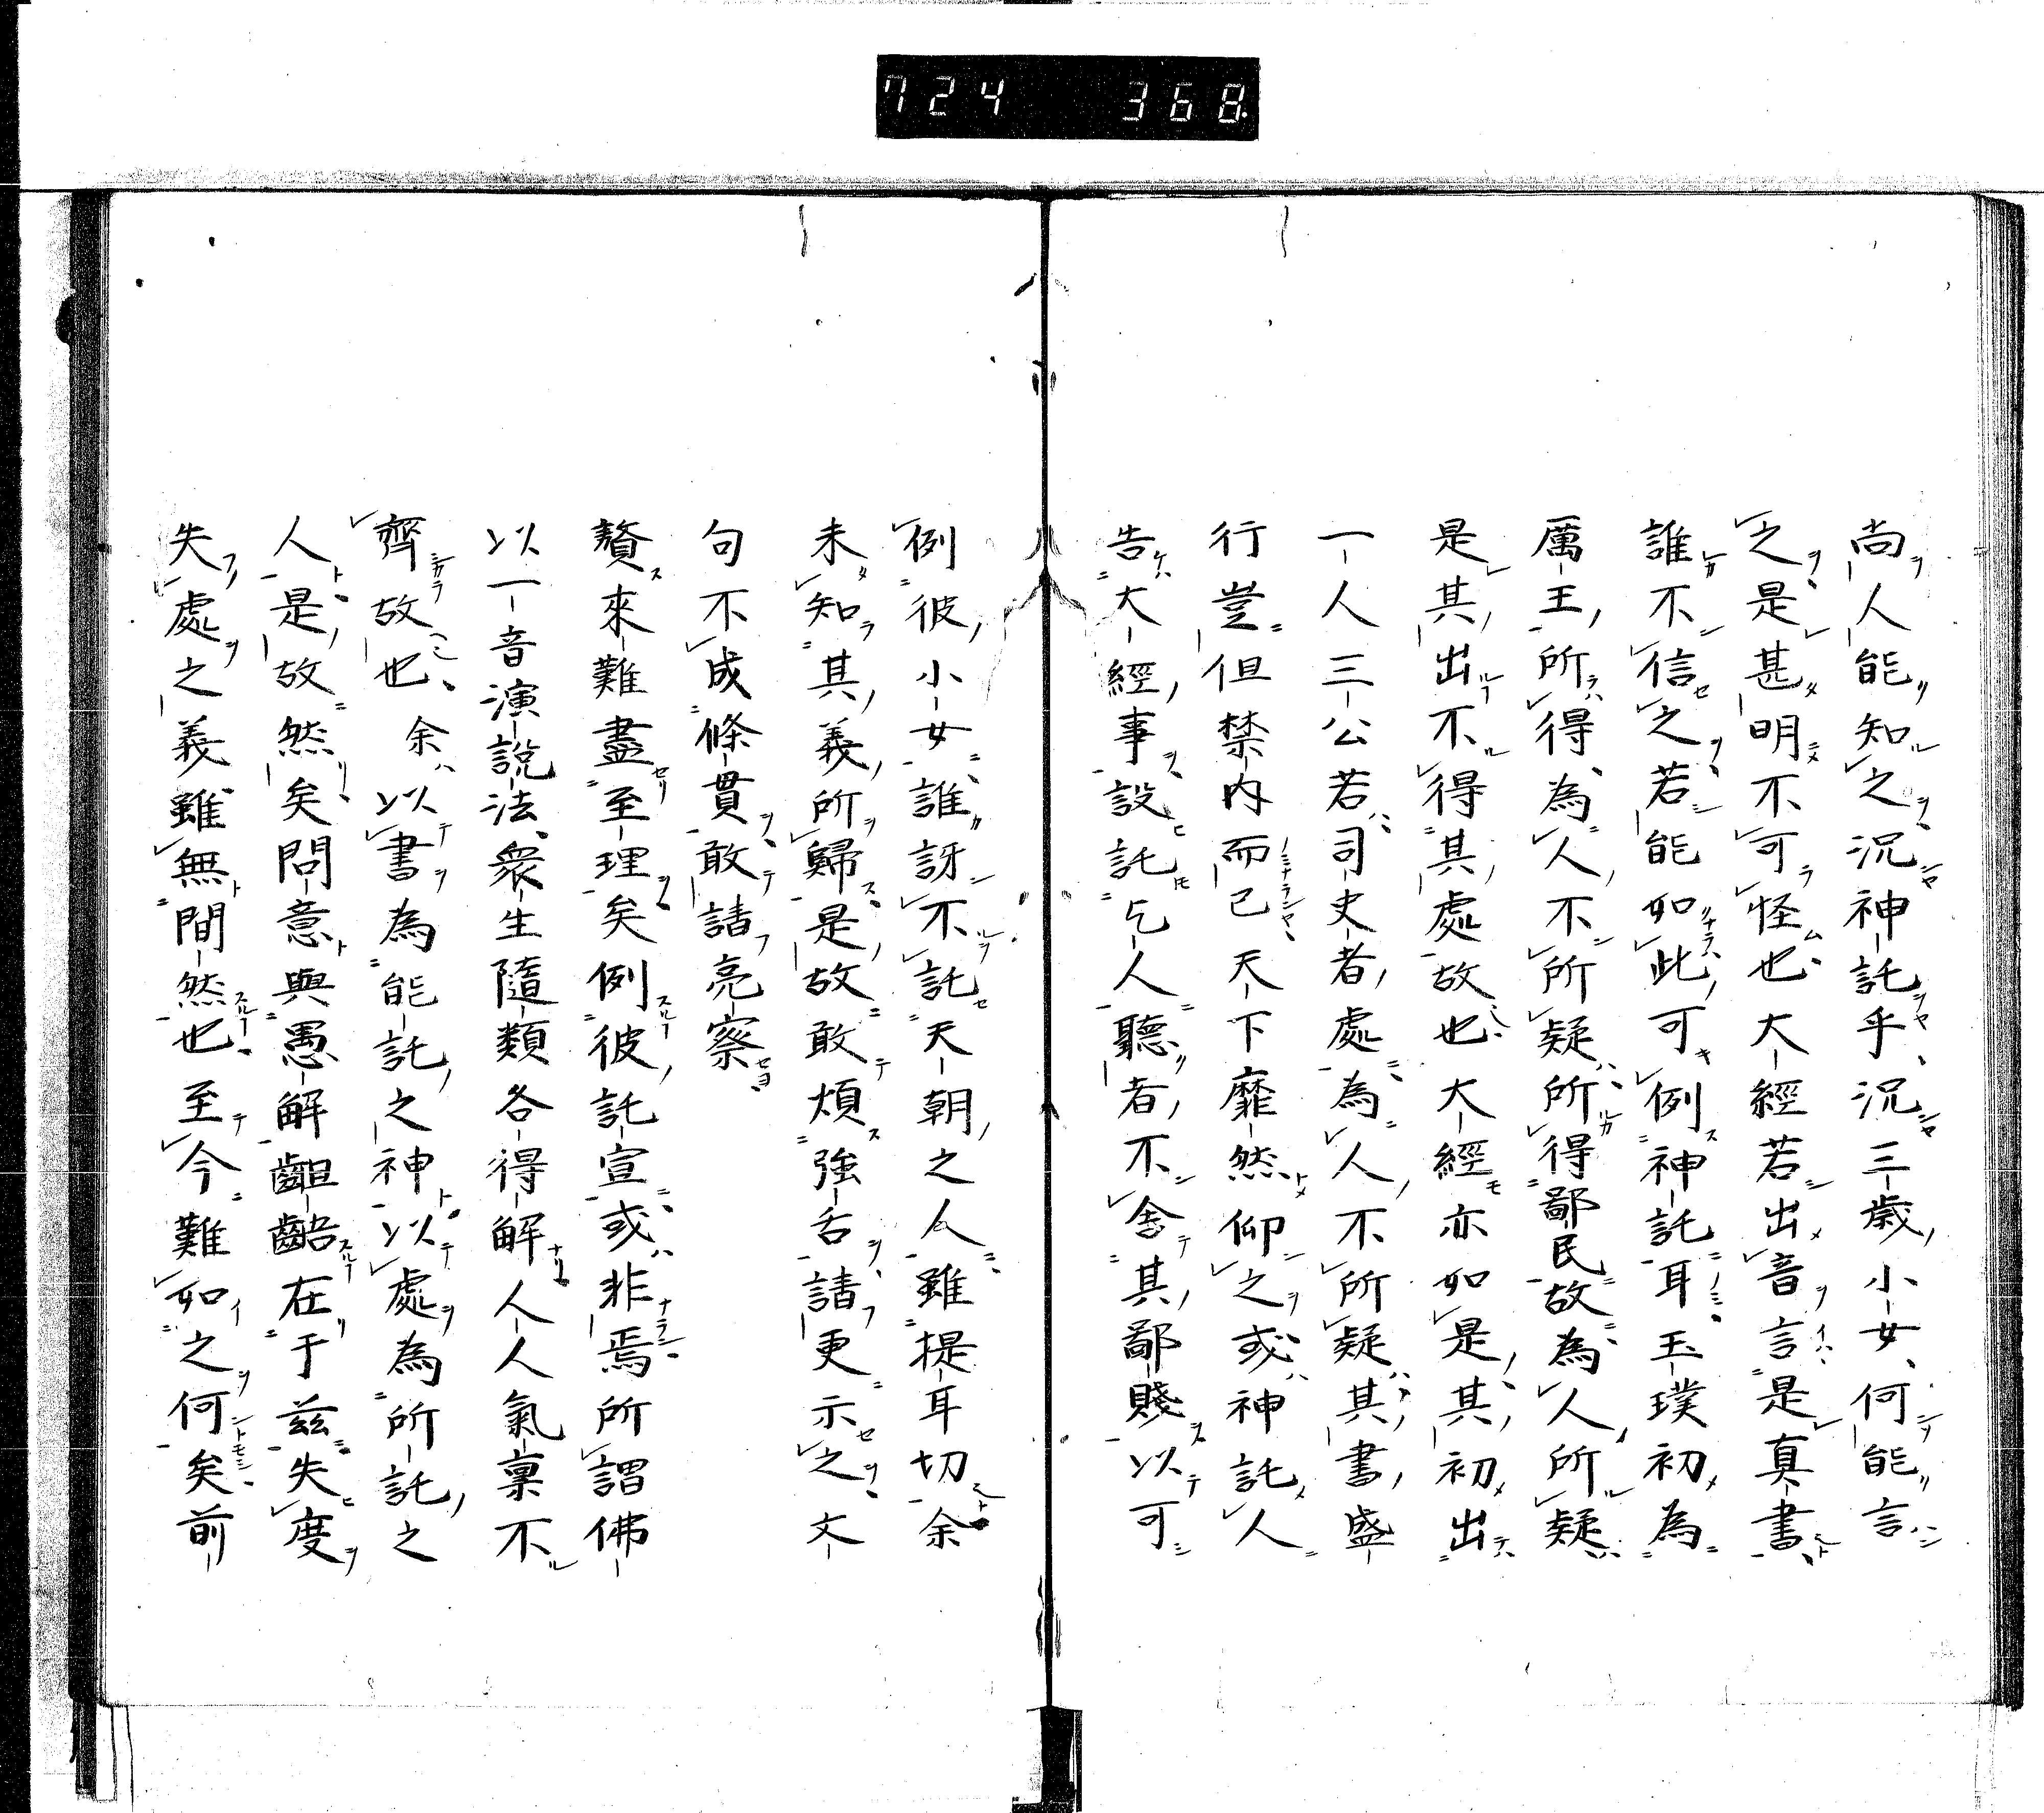 724 368
尚人能知之況神託乎況三歳小女何能言
之是甚明不可怪也大經若出音言是真書
誰不信之若能如此可例神託耳玉璞初為
厲王所得為人不所疑所得鄙民故為人所疑
是其出不得其處故也大經亦如是其初出
一人三公若司吏者處為人不所疑其書盛
行豈但禁内而已天下靡然仰之或神託人
告大經事設託乞人聽者不舍其鄙賤以可
例彼小女誰訝不託天朝之人雖提耳切余
未知其義所歸是故敢煩強舌請更示之文
句不成條貫敢請亮察
贅來難盡至理矣例彼託宣或非焉所謂佛
以一音演說法衆生隨類各得解人人氣稟不
齊故也余以書為能託之神以處為所託之
人是故然矣問意與愚解齟齬在于茲失度
失處之義雖無間然也至今難如之何矣前